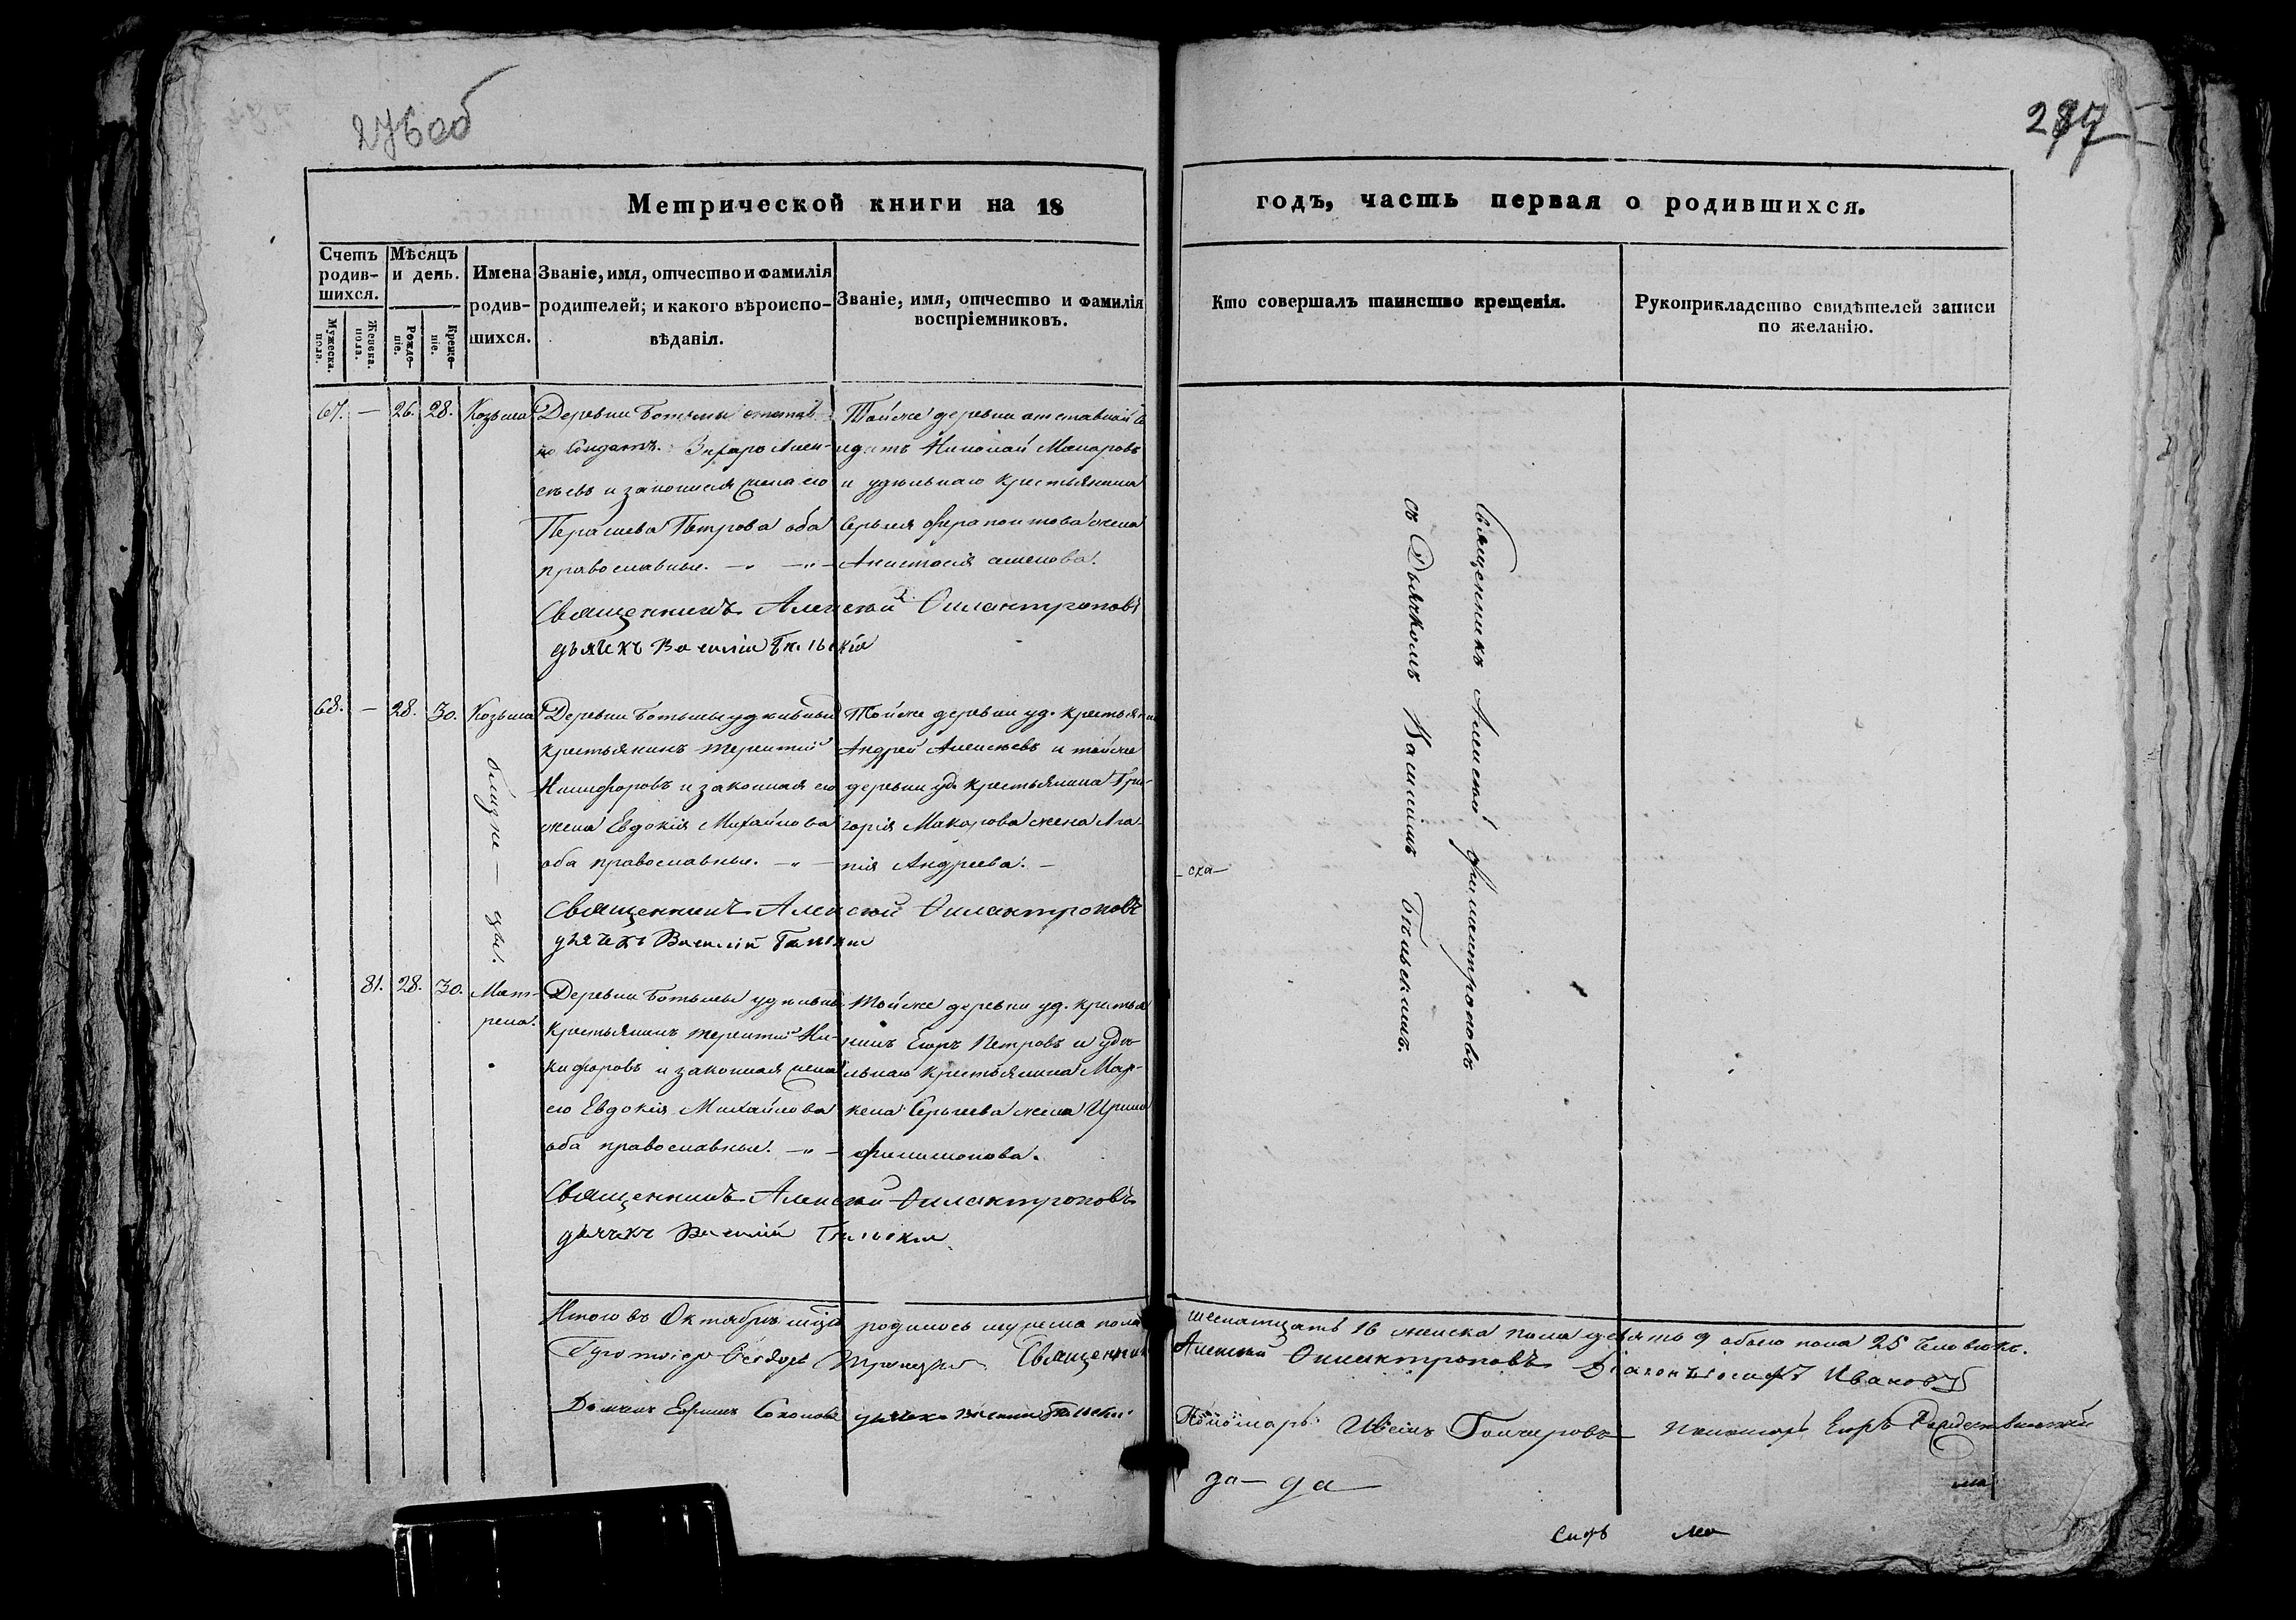 276об
277
Метрической книги на 18
годъ, часть первая о родившихся.
Счетъ родив-
шихся.
Мужеска. пола.
Женска. пола.
Мѣсяцъ
и день.
Рожде-
ніе.
Креще-
ніе.
Имена
родив-
шихся.
Званіе, имя, отчество и фамилія
родителей; и какого вѣроиспо-
вѣданія.
Званіе, имя, отчество и фамилія
воспріемниковъ.
Кто совершалъ таинство крещенія.
Рукоприкладство свидѣтелей записи
по желанію.
67. — 26. 28. Козьма
Деревни Ботьмы
Солдатъ Алек-
сѣевъ и законная жена его
Петрова оба
православные.
Тойже деревни отставной со
лдатъ Николай Макаровъ
и удѣльнаго крестьянина
Сергея Ферапонтова жена
Анистасія
Священникъ Алексій Филантроповъ
дьячекъ Василій Бѣльскій
68. — 28. 30. Козьма
близне — цы.
Деревни Ботьмы удѣльный
крестьянинъ Терентій
Никифоровъ и законная его
жена Евдокія Михайлова
оба православные.
Тойже деревни уд. крестьянин
Андрей Алексѣевъ и тойже
деревни уд. крестьянина Гри-
горія Макарова жена Ага-
пія Андреева.
Священникъ Алексій Филантроповъ
дьячекъ Василій Бѣльскій
81. 28. 30. Мат-
рена.
Деревни Ботьмы удѣльный
крестьянинъ Терентій Ни-
кифоровъ и законная жена
его Евдокія Михайлова
оба православные.
Тойже деревни уд. крестья
нинъ Егоръ Петровъ и удѣ
льнаго крестьянина Мар-
кела Сергеева жена Ирина
Филимонова.
Священникъ Алексій Филантроповъ
дьячекъ Василій Бѣльскій
Священникъ Алексій Филантроповъ
съ Дьячкомъ Василіемъ Бѣльскимъ.
ска
Итого въ Октябрѣ мцѣ родилось мужеска пола шеснатцать 16 женска пола девять 9 обоего пола 25 человѣкъ.
Троицкій Священникъ Алексій Филантроповъ Діаконъ Іосифъ Ивановъ
Дьячекъ Ефимъ Соколовъ дьячекъ Василій Бѣльскій Пономарь Гончаровъ пономарь Егоръ Рождественскій
за — да
ма
сифъ ма